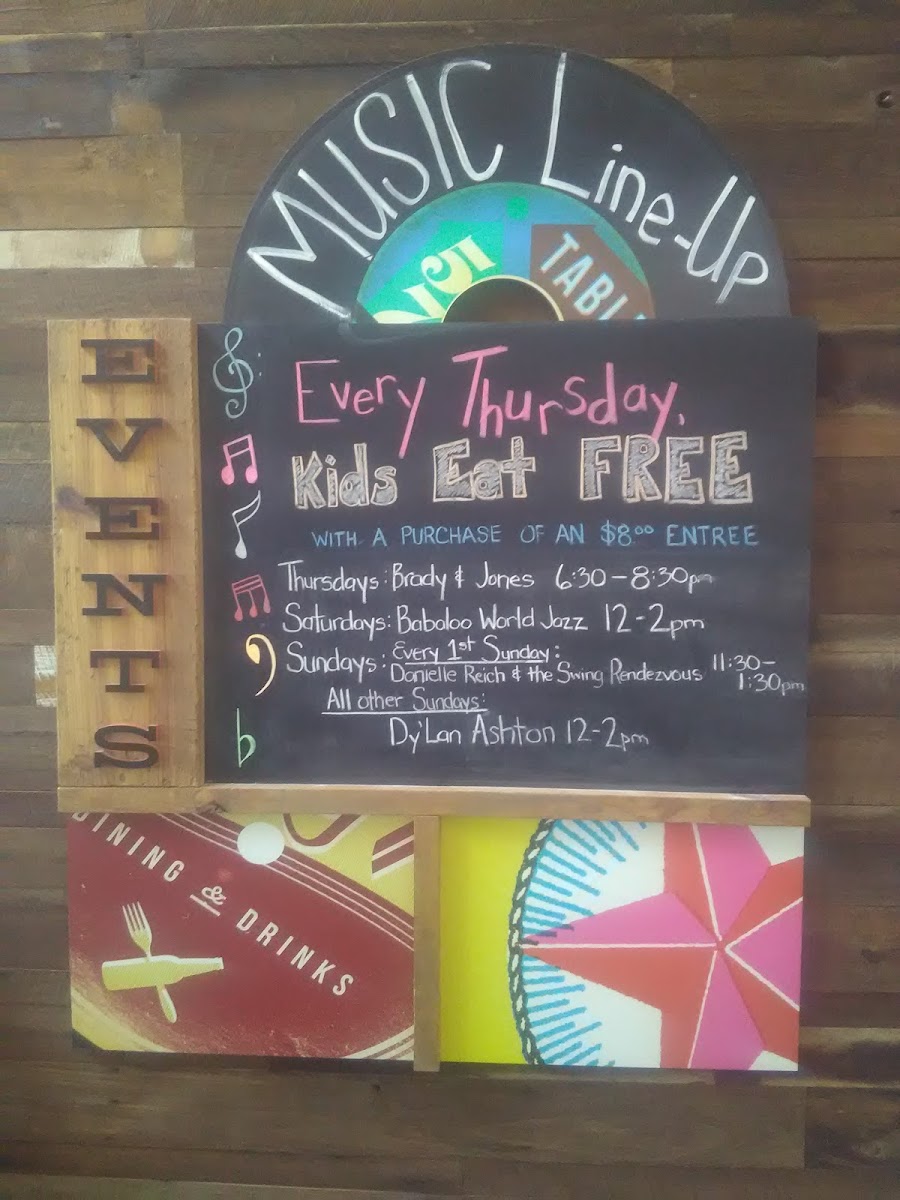 MUSIC Line-Up
TABL
EVENTS
Every Thursday,
Kids Eat FREE
WITH A PURCHASE OF AN $8⁰⁰ ENTREE
Thursdays: Brady & Jones 6:30-8:30pm
Saturdays: Babaloo World Jazz 12-2pm
Sundays: Every 1st Sunday:
Danielle Reich & the Swing Rendezvous 11:30-
1:30pm
All other Sundays:
Dy'Lan Ashton 12-2pm
DINING & DRINKS